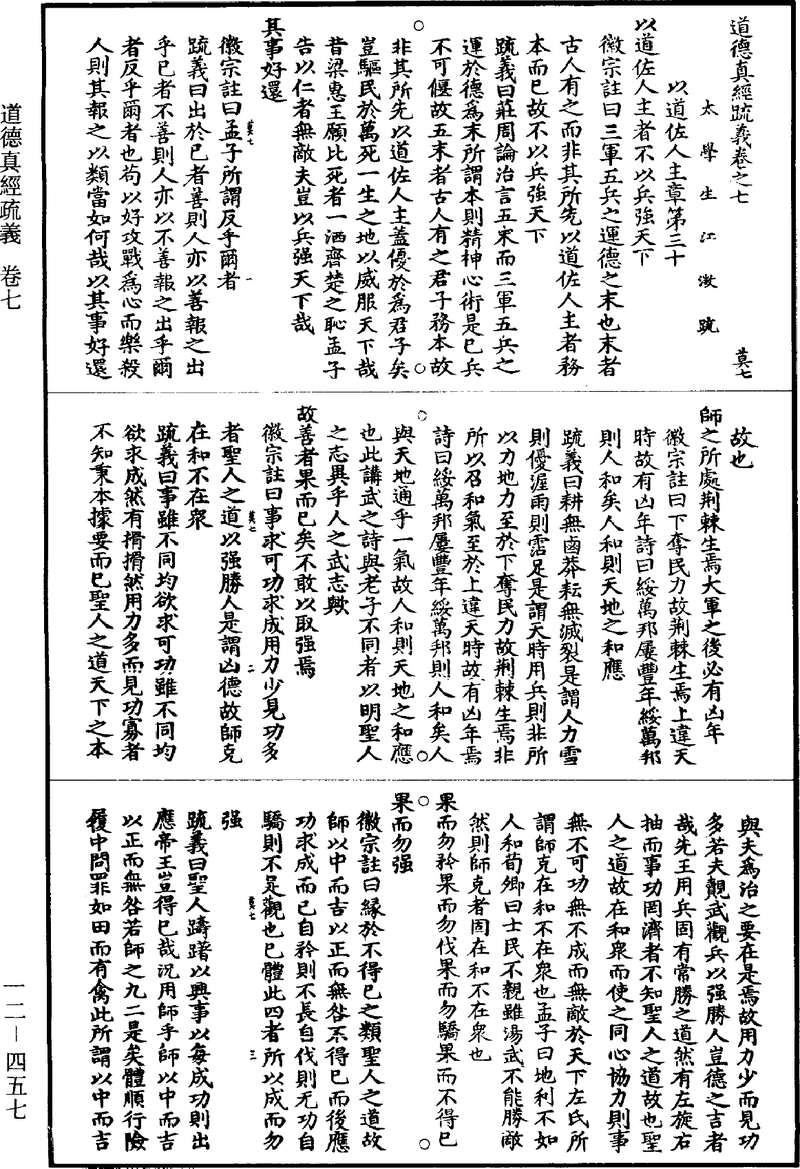 道德真經疏義卷之七
莫七
太學生江澂疏
以道佐人主章第三十
以道佐人主者不以兵強天下
徽宗註曰三軍五兵之運德之末也末者
古人有之而非其所先以道佐人主者務
本而已故不以兵強天下
疏義曰莊周論治言五末而三軍五兵之
運於德為末所謂本則精神心術是已兵
不可偃故五末者古人有之君子務本故
非其所先以道佐人主蓋優於為君子矣
豈驅民於萬死一生之地以威服天下哉
昔梁惠王願比死者一洒齊楚之恥孟子
告以仁者無敵夫豈以兵强天下哉
其事好還
徽宗註曰孟子所謂反乎爾者
莫七
一
疏義曰出於己者善則人亦以善報之出
乎己者不善則人亦以不善報之出乎爾
者反乎爾者也苟以好攻戰為心而樂殺
人則其報之以類當如何哉以其事好還
故也
師之所處荆棘生焉大軍之後必有凶年
徽宗註曰下奪民力故荆棘生焉上違天
時故有凶年詩曰綏萬邦屢豐年綏萬邦
則人和矣人和則天地之和應
疏義曰耕無鹵莽耘無滅裂是謂人力雪
則優渥雨則霑足是謂天時用兵則非所
以力地力至於下奪民力故荆棘生焉非
所以召和氣至於上違天時故有凶年焉
詩曰綏萬邦屢豐年綏萬邦則人和矣人
與天地通乎一氣故人和則天地之和應
也此講武之詩與老子不同者以明聖人
之志異乎人之武志歟
故善者果而已矣不敢以取强焉
徽宗註曰事求可功求成用力少見功多
者聖人之道以强勝人是謂凶德故師克
莫七
二
在和不在衆
疏義曰事雖不同均欲求可功雖不同均
欲求成然有搰搰然用力多而見功寡者
不知秉本據要而已聖人之道天下之本
與夫為治之要在是焉故用力少而見功
多若夫觀武觀兵以强勝人豈德之吉者
哉先王用兵固有常勝之道然有左旋右
抽而事功罔濟者不知聖人之道故也聖
人之道故在和衆而使之同心協力則事
無不可功無不成而無敵於天下左氏所
謂師克在和不在衆也孟子曰地利不如
人和荀卿曰士民不親雖湯武不能勝敵
然則師克者固在和不在衆也
果而勿矜果而勿伐果而勿驕果而不得已
果而勿强
徽宗註曰緣於不得已之類聖人之道故
師以中而吉以正而無咎不得已而後應
功求成而已自矜則不長自伐則无功自
驕則不足觀也已體此四者所以成而勿
莫七
三
强
疏義曰聖人躊躇以興事以每成功則出
應帝王豈得已哉況用師乎師以中而吉
以正而無咎若師之九二是矣體順行險
履中問罪如田而有禽此所謂以中而吉
道德真經疏義　卷七
一二－四五七